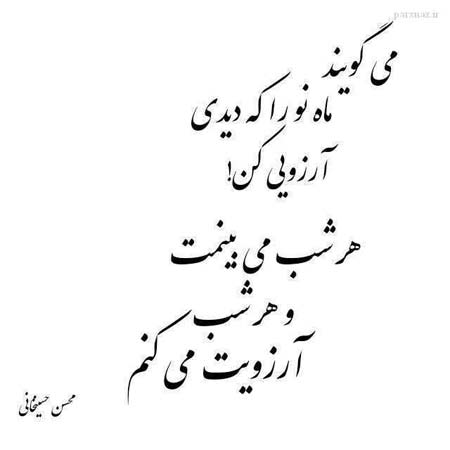 می گویند
ماه نو را که دیدی
آرزویی کن!
هر شب می بینمت
و هر شب
آرزویت می کنم
محسن حسینخانی